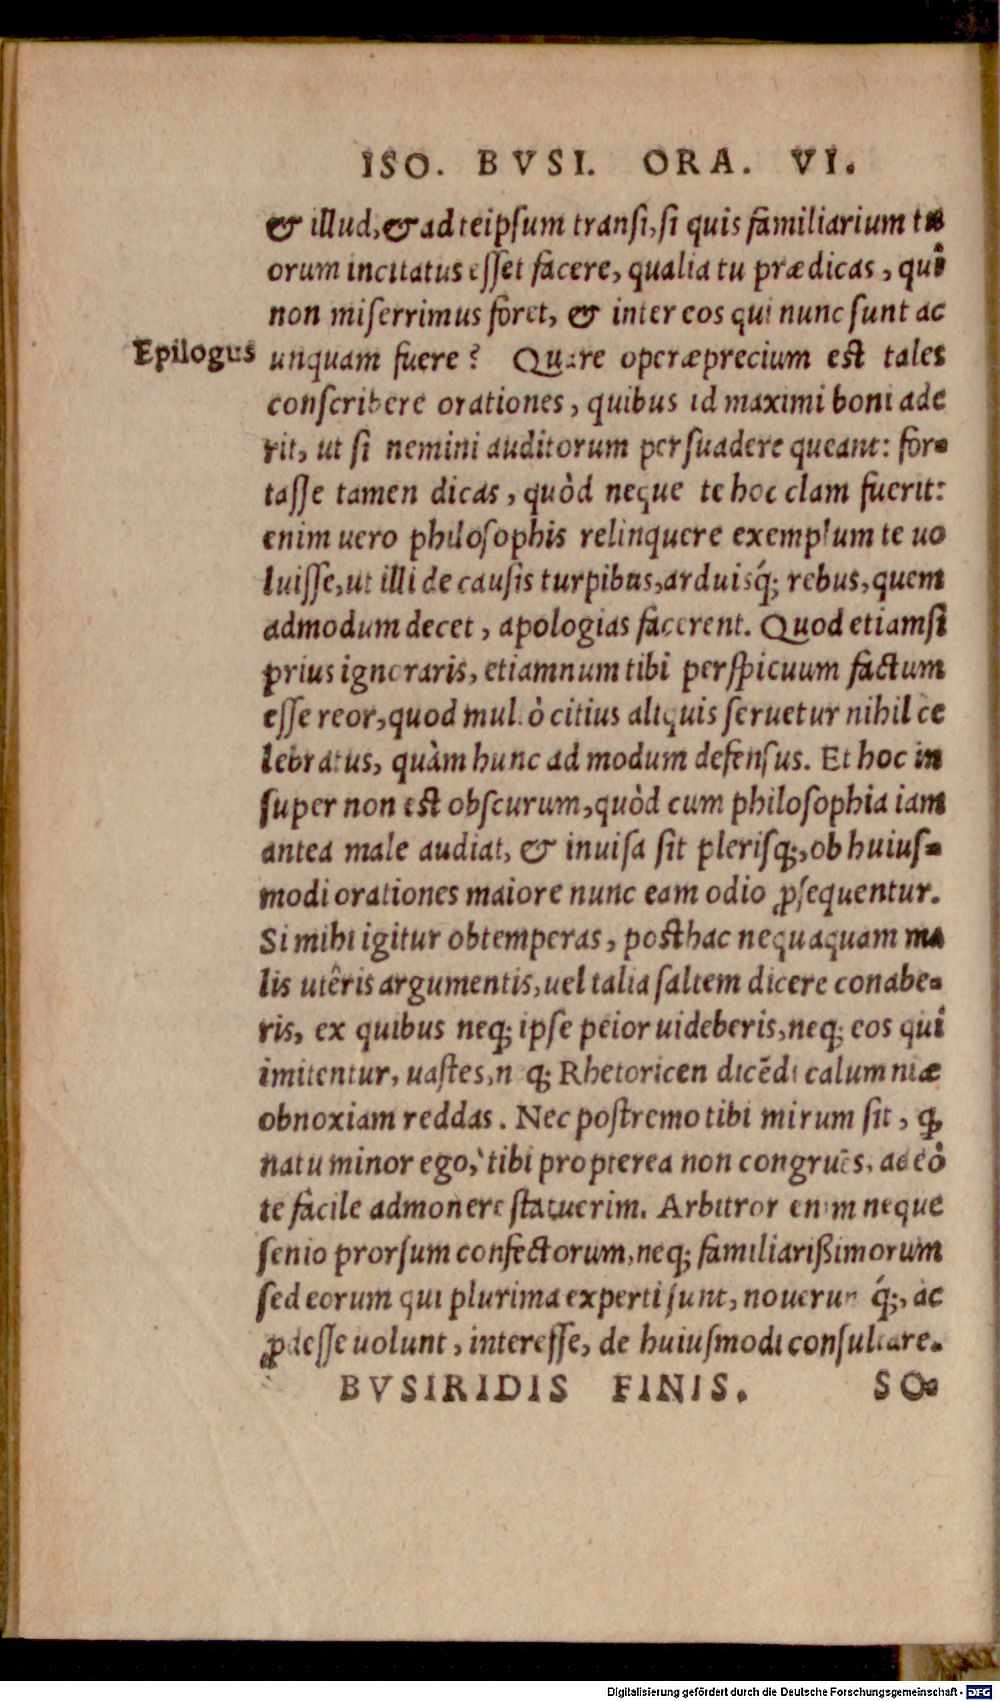 ISO. BVSI. ORA. VI.
& illud, & ad teipsum transi, si quis familiarium tu
orum incitatus esset facere, qualia tu prædicas, qui
non miserrimus foret, & inter eos qui nunc sunt ac
Epilogus
unquam fuere? Quare operæprecium est tales
conscribere orationes, quibus id maximi boni ade
rit, ut si nemini auditorum persuadere queant: for-
tasse tamen dicas, quòd neque te hoc clam fuerit:
enim uero philosophis relinquere exemplum te uo
luisse, ut illi de causis turpibus, arduisq́; rebus, quem
admodum decet, apologias facerent. Quod etiamsi
prius ignoraris, etiamnum tibi perspicuum factum
esse reor, quod multò citius aliquis seruetur nihil ce
lebratus, quàm hunc ad modum defensus. Et hoc in
super non est obscurum, quòd cum philosophia iam
antea male audiat, & inuisa sit plerisq;, ob huius-
modi orationes maiore nunc eam odio ꝓsequentur.
Si mihi igitur obtemperas, posthac nequaquam ma
lis utêris argumentis, uel talia saltem dicere conabe-
ris, ex quibus neq; ipse peior uideberis, neq; eos qui
imitentur, uastes, neq; Rhetoricen dicẽdi calumniæ
obnoxiam reddas. Nec postremo tibi mirum sit, ꝙ
natu minor ego, tibi propterea non congruẽs, adeò
te facile admonere statuerim. Arbitror enim neque
senio prorsum confectorum, neq; familiarißimorum
sed eorum qui plurima experti sunt, nouerunt q́;, ac
ꝓdesse uolunt, interesse, de huiusmodi consultare.
BVSIRIDIS FINIS. SO-
Digitalisierung gefördert durch die Deutsche Forschungsgemeinschaft - DFG